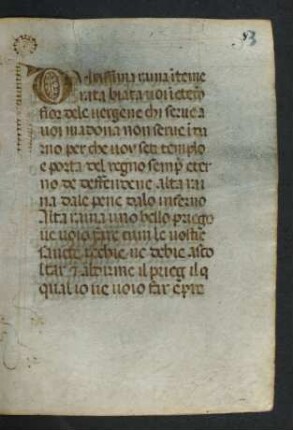 53
O altissima raina i teme
rata biata uoi i eterno
fior dele uergene chi serue a
uoi madona non serue i ua
no per che uoy seti templo
e porta del regno semp eter
no de deffendene alta rai
na dale pene dalo inferno
Alta raina uno bello priego
ue uoio fare cum le uostre
sancte rechie ue debie asco
ltar z aldirme il prieg il q
qual io ue uoio far epre